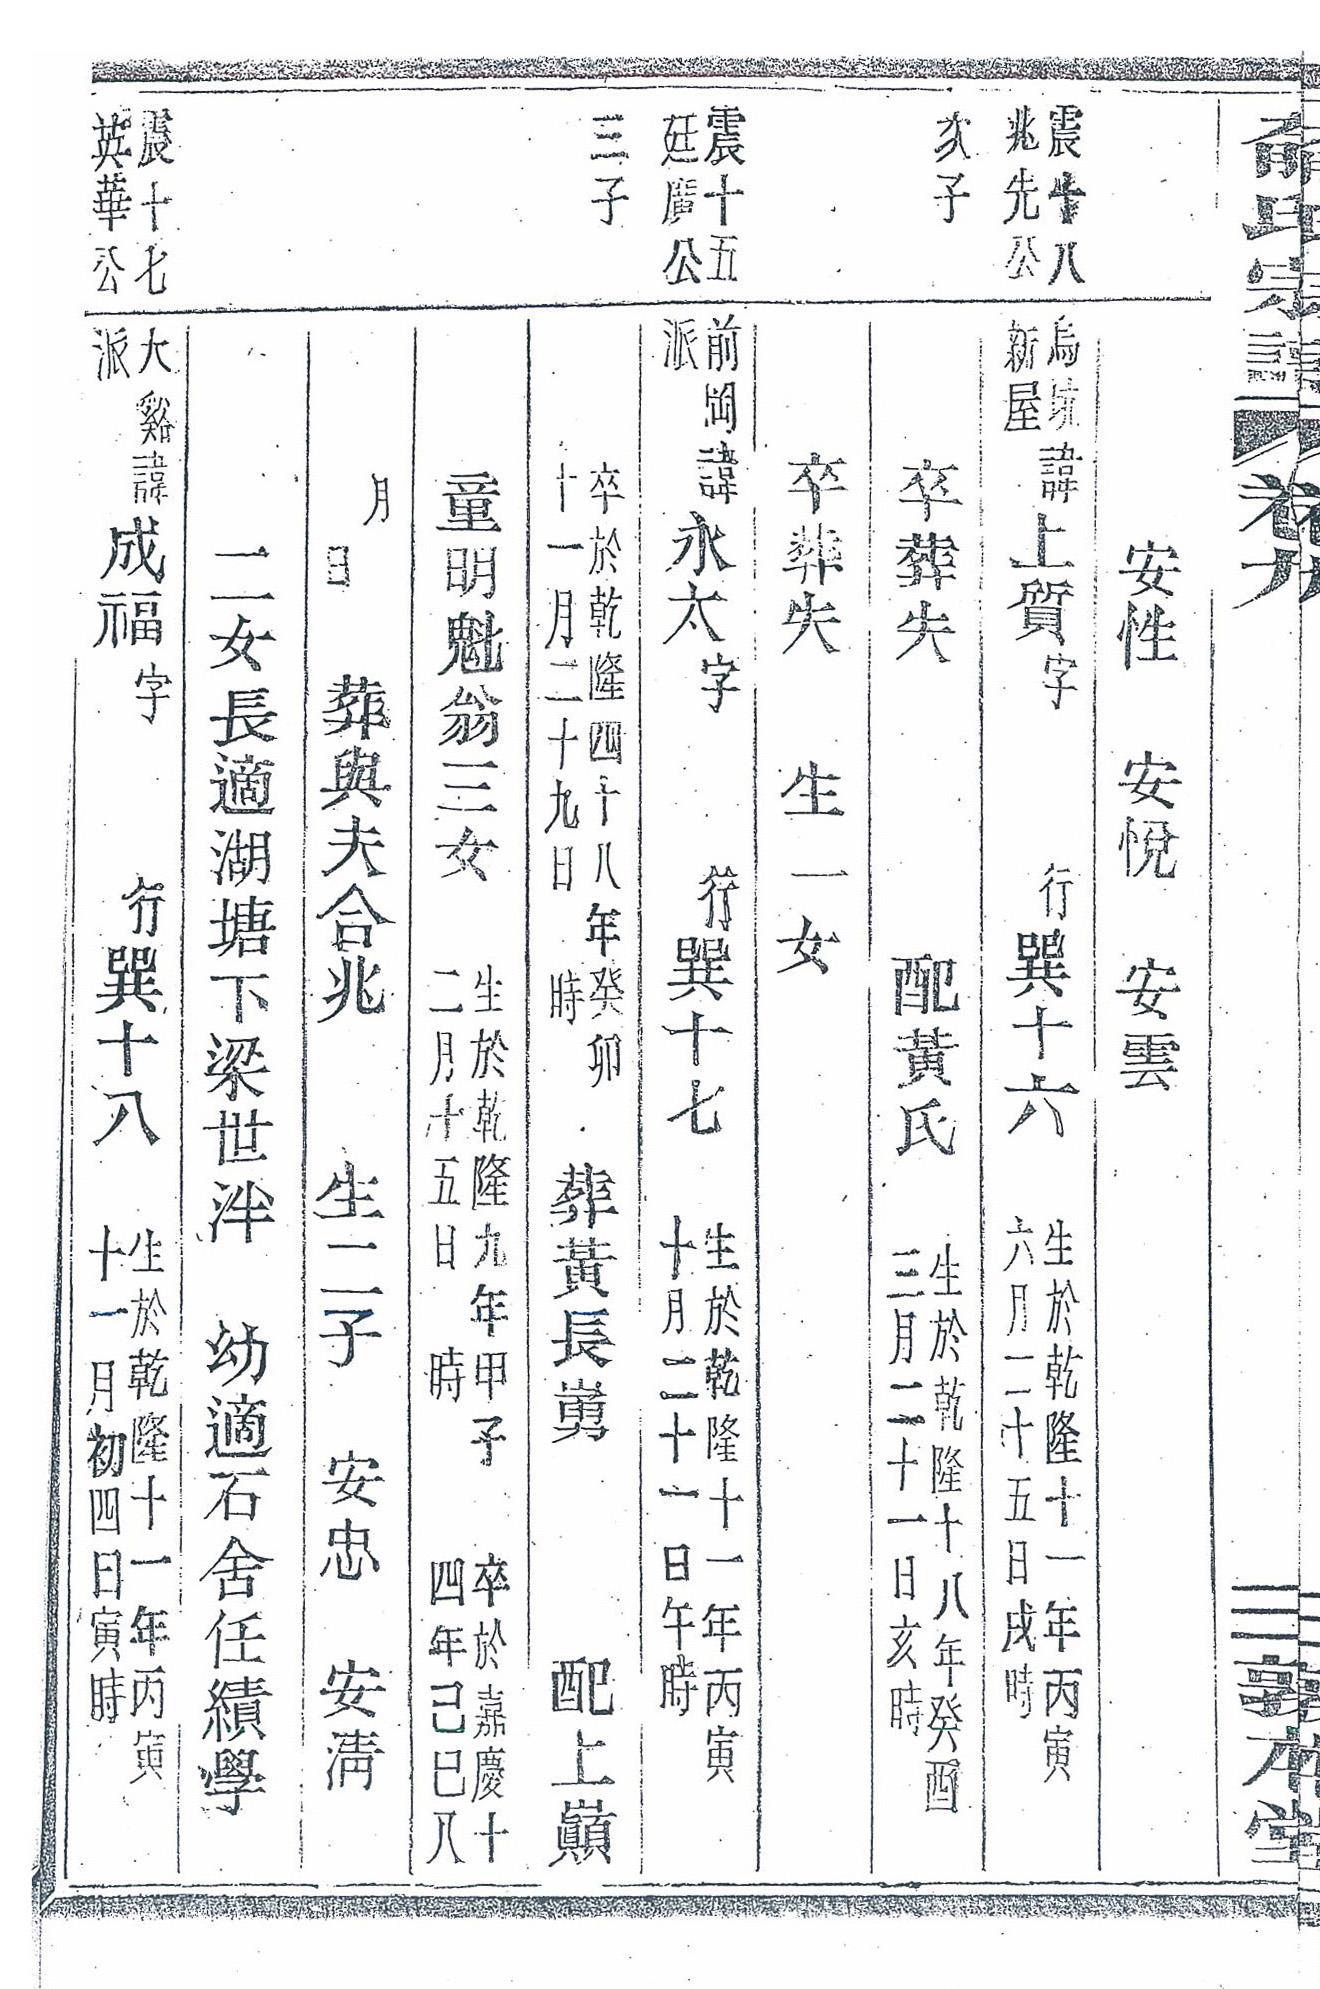 氏宗譜 卷九 三 敦本堂
安性 安悅 安雲
震十八
兆先公
烏坑
新屋
諱上質字 行巽十六
生於乾隆十一年丙寅
六月二十五日戌時
次子
卒葬失 配黃氏
生於乾隆十八年癸酉
三月二十一日亥時
卒葬失 生一女
震十五
廷廣公
前岡
派
諱永太字 行巽十七
生於乾隆十一年丙寅
十月二十一日午時
三子
卒於乾隆四十八年癸卯
十一月二十九日 時
葬黃長嵡 配上巔
童明魁翁三女
生於乾隆九年甲子
二月十五日 時
卒於嘉慶十
四年己巳八
月
日
葬與夫合兆 生二子 安忠 安清
二女長適湖塘下梁世泮 幼適石舍任績學
震十七
英華公
大谿
派
諱成福字 行巽十八
生於乾隆十一年丙寅
十一月初四日寅時